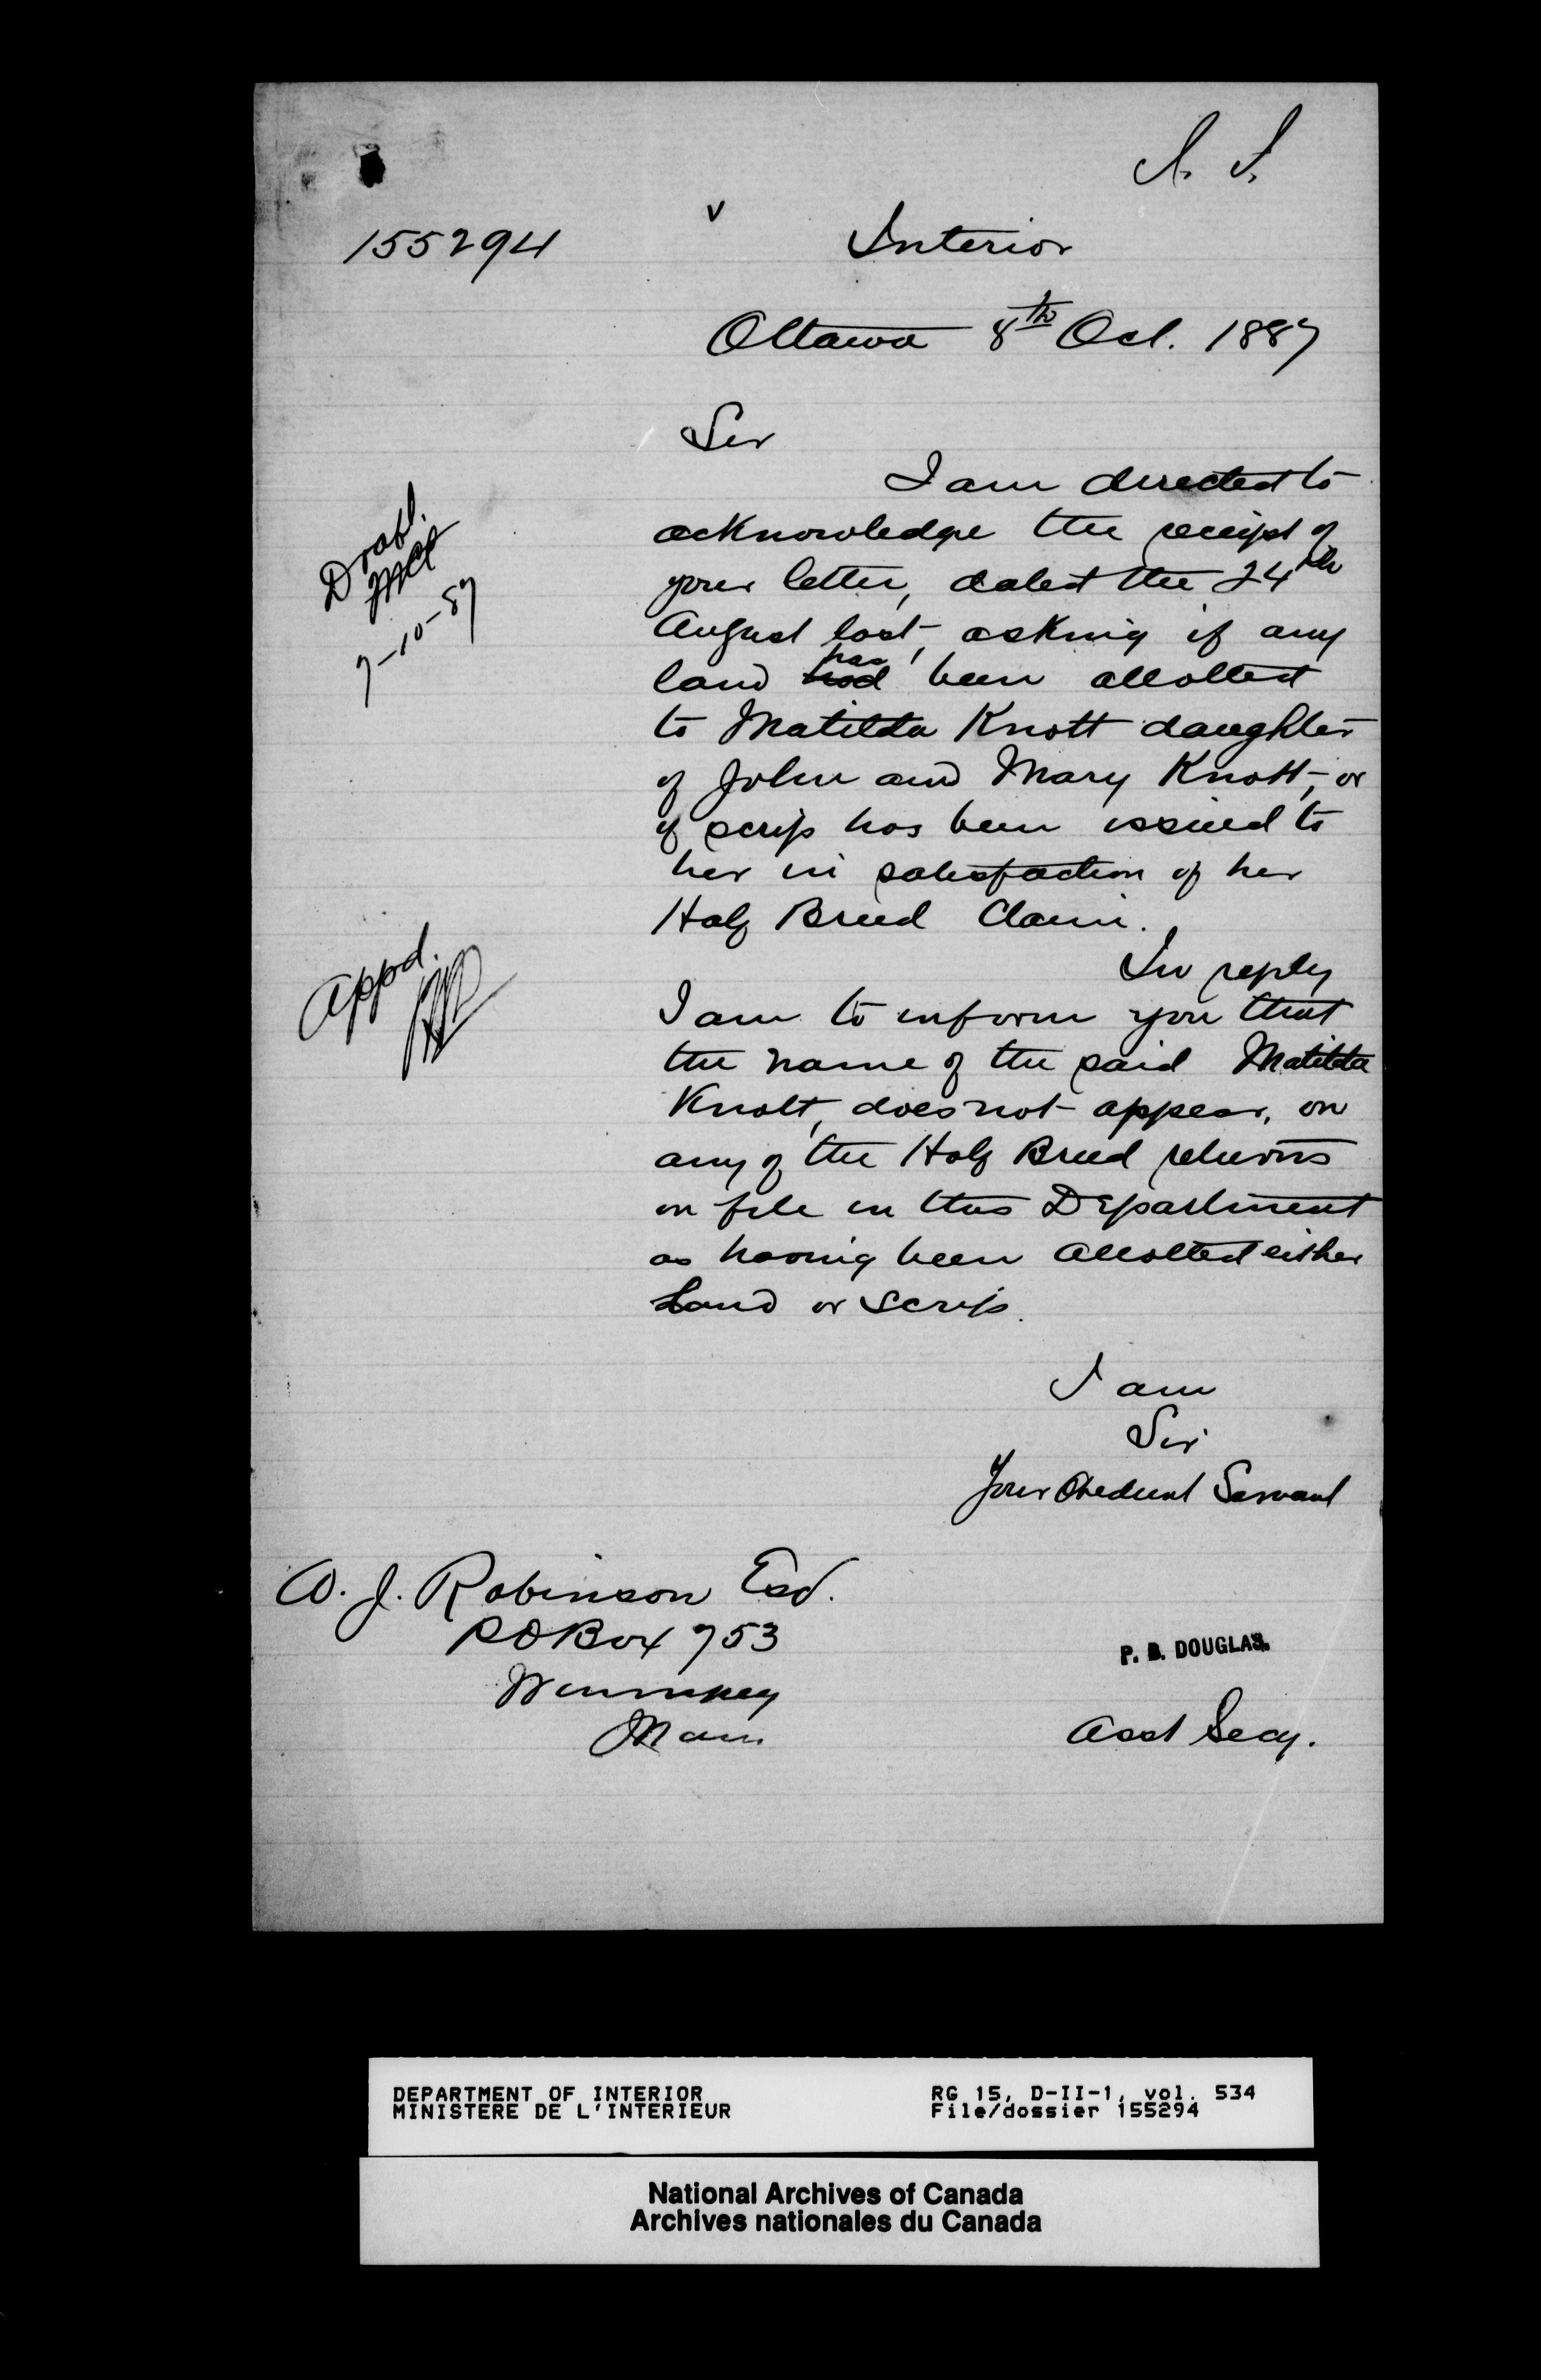 155294
Interior
Ottawa 8th Oct. 1887
Sir
I am directed to
acknowledge the receipt of
your letter, dated the 24th
August last, asking if any
has
land had been allotted
to Matilda Knott daughter
of John and Mary Knott, or
if scrip has been issued to
her in satisfaction of her
Half Breed Claim.
In reply
I am to inform you that
the name of the said Matilda
Knott, does not appear, on
any of the Half Breed returns
on file in this Department
as having been allotted either
Land or Scrip.
I am
Sir
Your Obedient Servant
Draft.
7-10-87
Appd.
A. J. Robinson Esq.
P O Box 753
Winnipeg
Man.
P. B. DOUGLAS.
Asst Secy.
DEPARTMENT OF INTERIOR
MINISTERE DE L'INTERIEUR
RG 15, D-II-1, vol. 534
File/dossier 155294
National Archives of Canada
Archives nationales du Canada